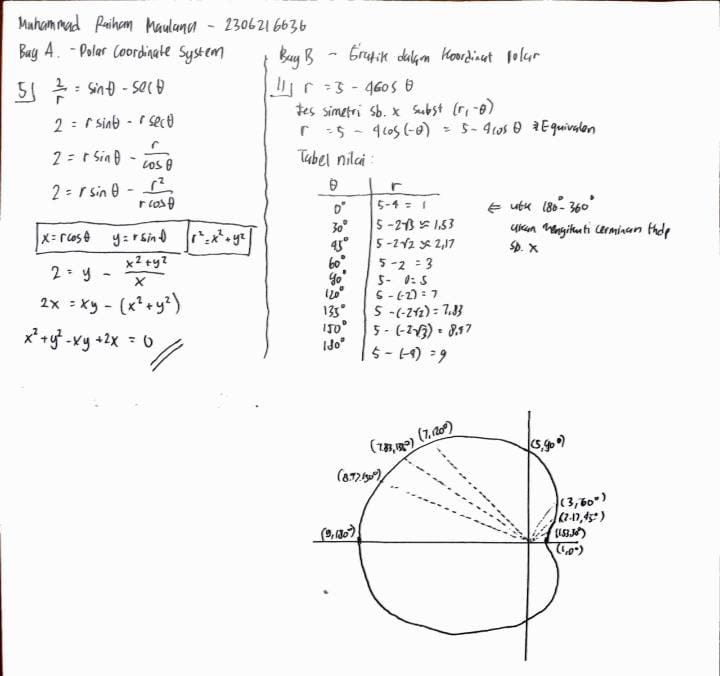 Muhammad Raihan Maulana - 2306216636
Bag A. - Polar Coordinate System
5) 2/r = sinθ - secθ
2 = r sinθ - r secθ
2 = r sinθ - r/cosθ
2 = r sinθ - r²/(r cosθ)
x = r cosθ y = r sinθ r² = x² + y²
2 = y - (x² + y²)/x
2x = xy - (x² + y²)
x² + y² - xy + 2x = 0
Bag B - Grafik dalam Koordinat Polar
11) r = 5 - 4cos θ
tes simetri sb. x subst (r, -θ)
r = 5 - 4cos(-θ) = 5 - 4cos θ Equivalen
Tabel nilai :
θ r
0° 5 - 4 = 1
30° 5 - 2√3 ≈ 1,53
45° 5 - 2√2 ≈ 2,17
60° 5 - 2 = 3
90° 5 - 0 = 5
120° 5 - (-2) = 7
135° 5 - (-2√2) = 7,83
150° 5 - (-2√3) = 8,47
180° 5 - (-4) = 9
⇐ utk 180° - 360°
akan mengikuti cerminan thdp
sb. x
(7, 120°)
(7.83, 135°)
(8.47, 150°)
(9, 180°)
(5, 90°)
(3, 60°)
(2.17, 45°)
(1.53, 30°)
(1, 0°)